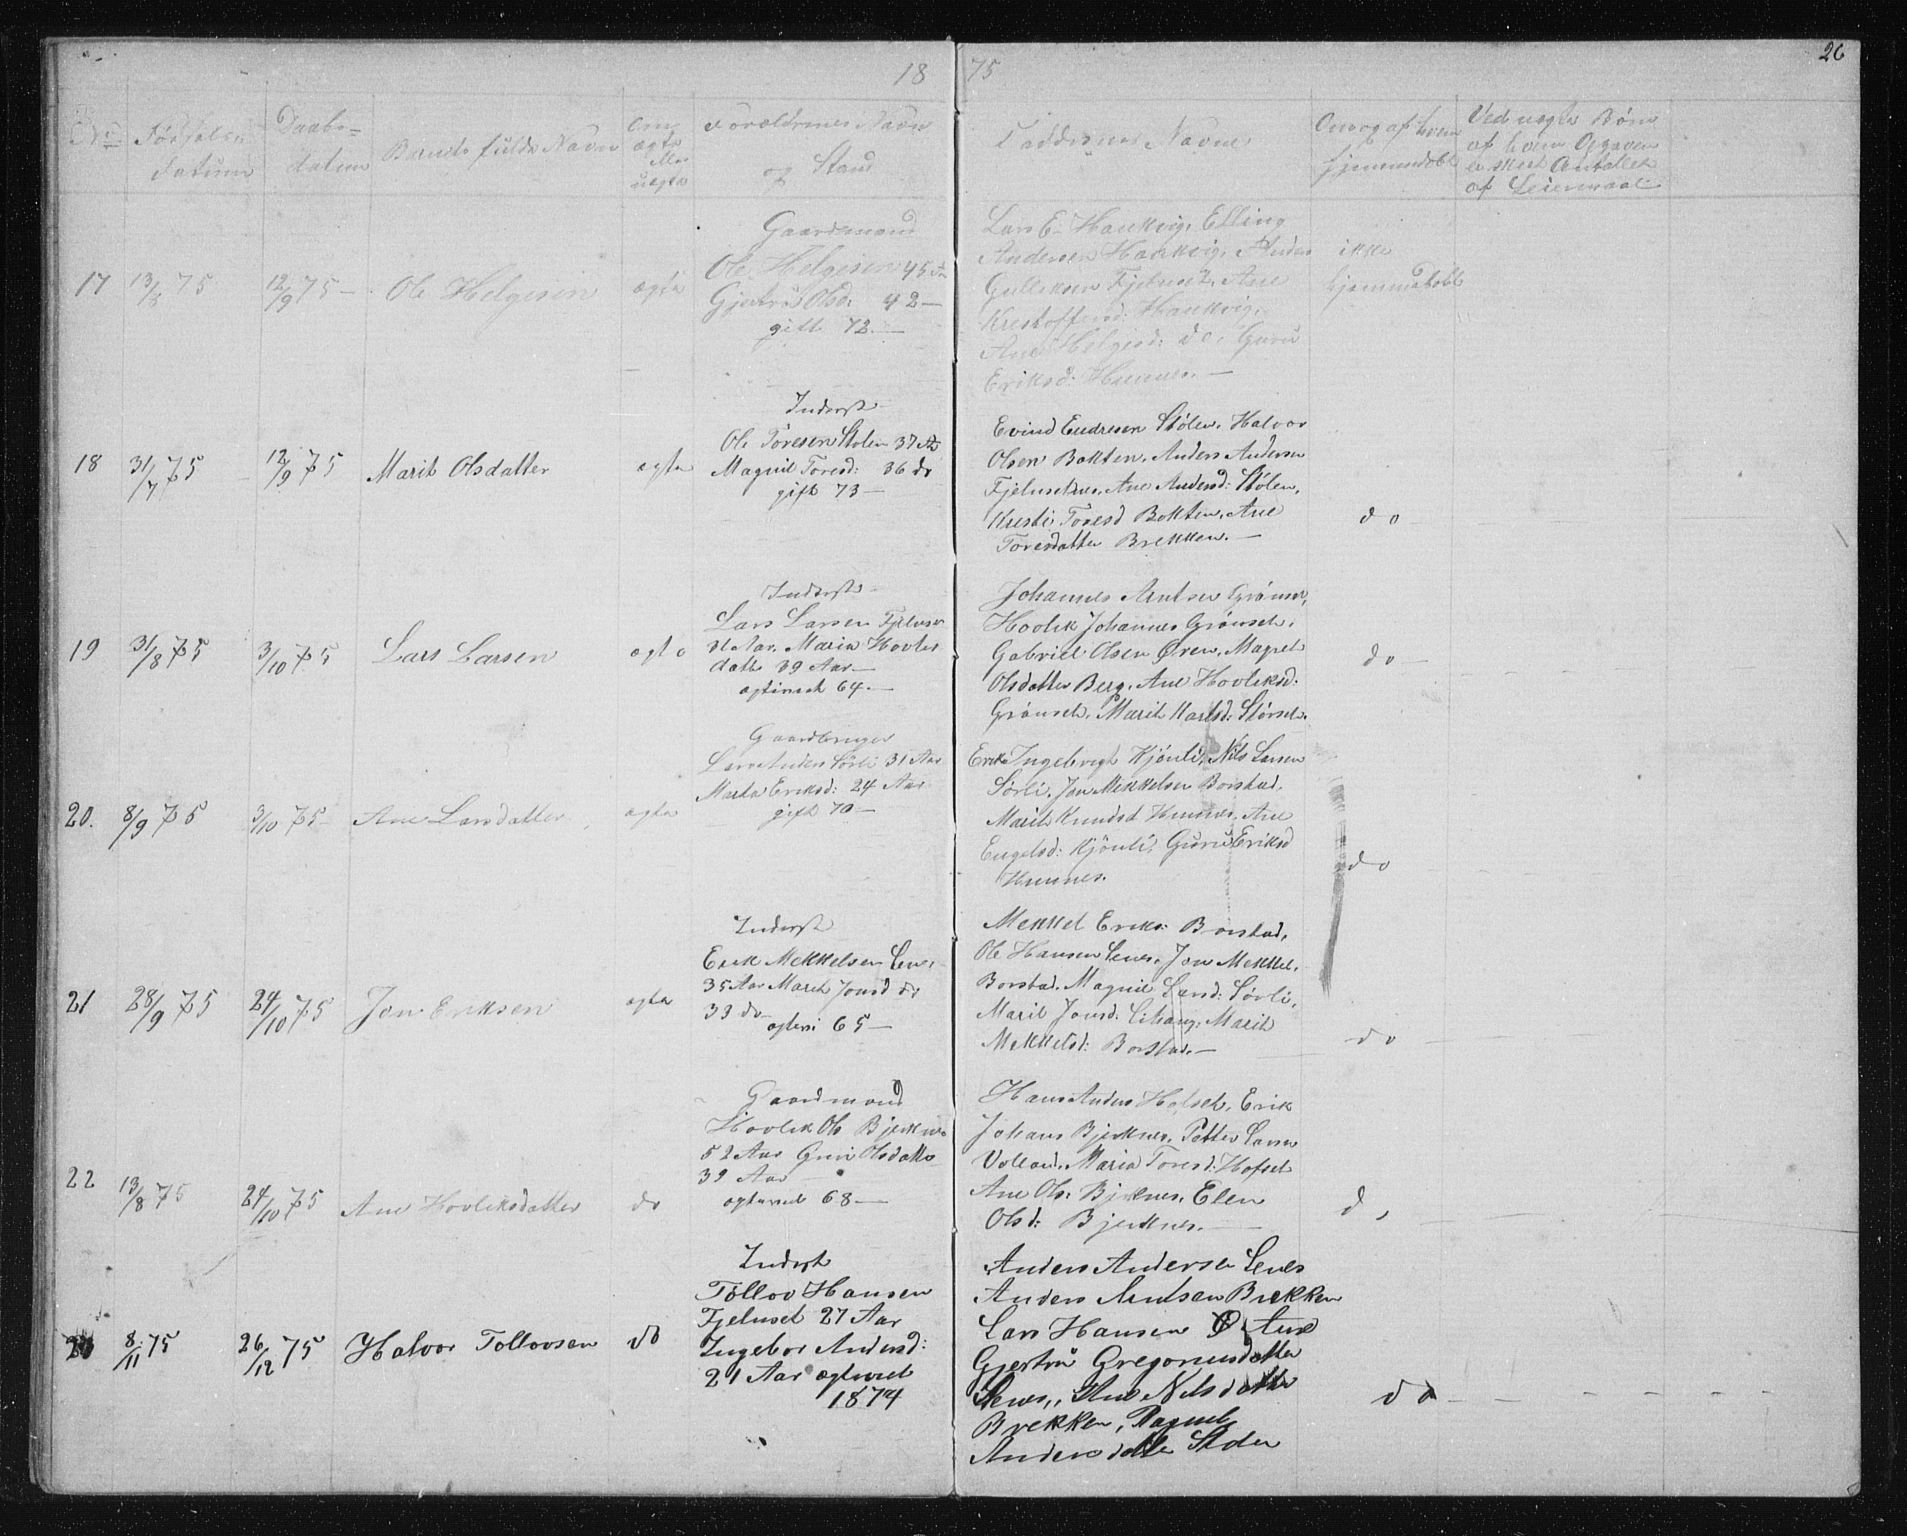 18 75
26
No
Fødsels-
datum
Daabs-
datum
Barnets fulde Navn
Om
ægte
eller
uægte
Forældrenes Navn
og Stand
Faddernes Navne
Om og af hvem
hjemmedøbt
Ved uægte Børn
af hvem Opgaven
er skeet Antallet
af Leiermaal
17 13/8 75 12/9 75 - Ole Helgesen ægte
Gaardmand
Ole Helgesen 45 Aar
Gjertrü Olsd: 42 —
gift 72. —
Lars E. Haukvig, Elling
Andersen Haukvig, Anders
Gulliksen Fjeluset, Ane
Kristoffersd: Haukvig,
Ane Helgesd: do, Guru
Eriksd: Hennes. —
ikke
hjemmedøbt
18 31/7 75 12/9 75 Marit Olsdatter ægte
Inderst
Ole Toresen Stølen 37 Aar
Magnil Toresd: 36 do
gift 73 —
Evind Endresen Stølen, Halvor
Olsen Bakken, Anders Andersen
Fjeluset, Ane Andersd: Stølen,
Kresti Toresd Bakken, Ane
Toresdatter Brekken. —
do
19 31/8 75 3/10 75 Lars Larsen ægte
Inderst
Lars Larsen Fjeluset
Aar. Maria Hovleks
datter 39 Aar —
ægteviet 64. —
Johannes Arntsen Grønset,
Hovlek Johannes Grønset,
Gabriel Olsen Øren, Magret
Olsdatter Berg, Ane Hovleksd:
Grønset, Marit Karlsd: Størset.
do —
20. 8/9 75 3/10 75 - Ane Larsdatter ægte
Gaardbruger
Lars Anders Sørli 31 Aar
Marta Eriksd: 24 Aar
gift 70 —
Erik Ingebrigt Kjönli, Nils Larsen
Sørli, Jon Mekkelsen Borstad,
Marit Knudsd Hennes, Ane
Engelsd: Kjönli, Guru Eriksd
Hennes.
do
21 28/9 75 24/10 75 Jon Eriksen ægte
Inderst
Erik Mekkelsen Lenes
35 Aar Marit Jonsd do
33 do
ægtevi 65 —
Mekkel Eriks: Borstad,
Ole Hansen Lenes, Jon Mekkel.
Borstad, Magnil Larsd: Sørli,
Marit Jonsd: Marit
Mekkelsd: Borstad. —
do
22 13/8 75 24/10 75 Ane Hovleksdatter do
Gaardmand
Hovlek Ols Bjerknes
52 Aar Guri Olsdatter
39 Aar —
ægteviet 68 —
Hans Anders Hofset, Erik
Johans Bjerknes, Petter Larsen
Volland, Maria Toresd: Hofset
Ane Ols. Bjerknes, Elen
Olsd: Bjerknes. —
do
23 8/11 75 26/12 75 Halvor Tollovsen do
Inderst
Tollov Hansen
Fjeluset 27 Aar
Ingebor Andersd:
21 Aar ægteviet
1874
Anders Andersen Lenes
Anders Arntsen Brekken
Lars Hansen Ø. Ane
Gjertrü Gregoriusdatter
Lenes, Ane Nilsdatter
Brekken, Ragnel
Andersdatter Stølen
do